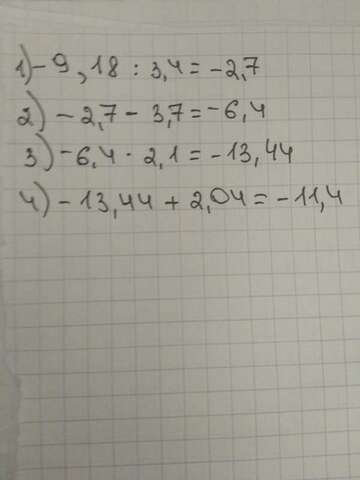 1) -9,18 : 3,4 = -2,7
2) -2,7 - 3,7 = -6,4
3) -6,4 · 2,1 = -13,44
4) -13,44 + 2,04 = -11,4